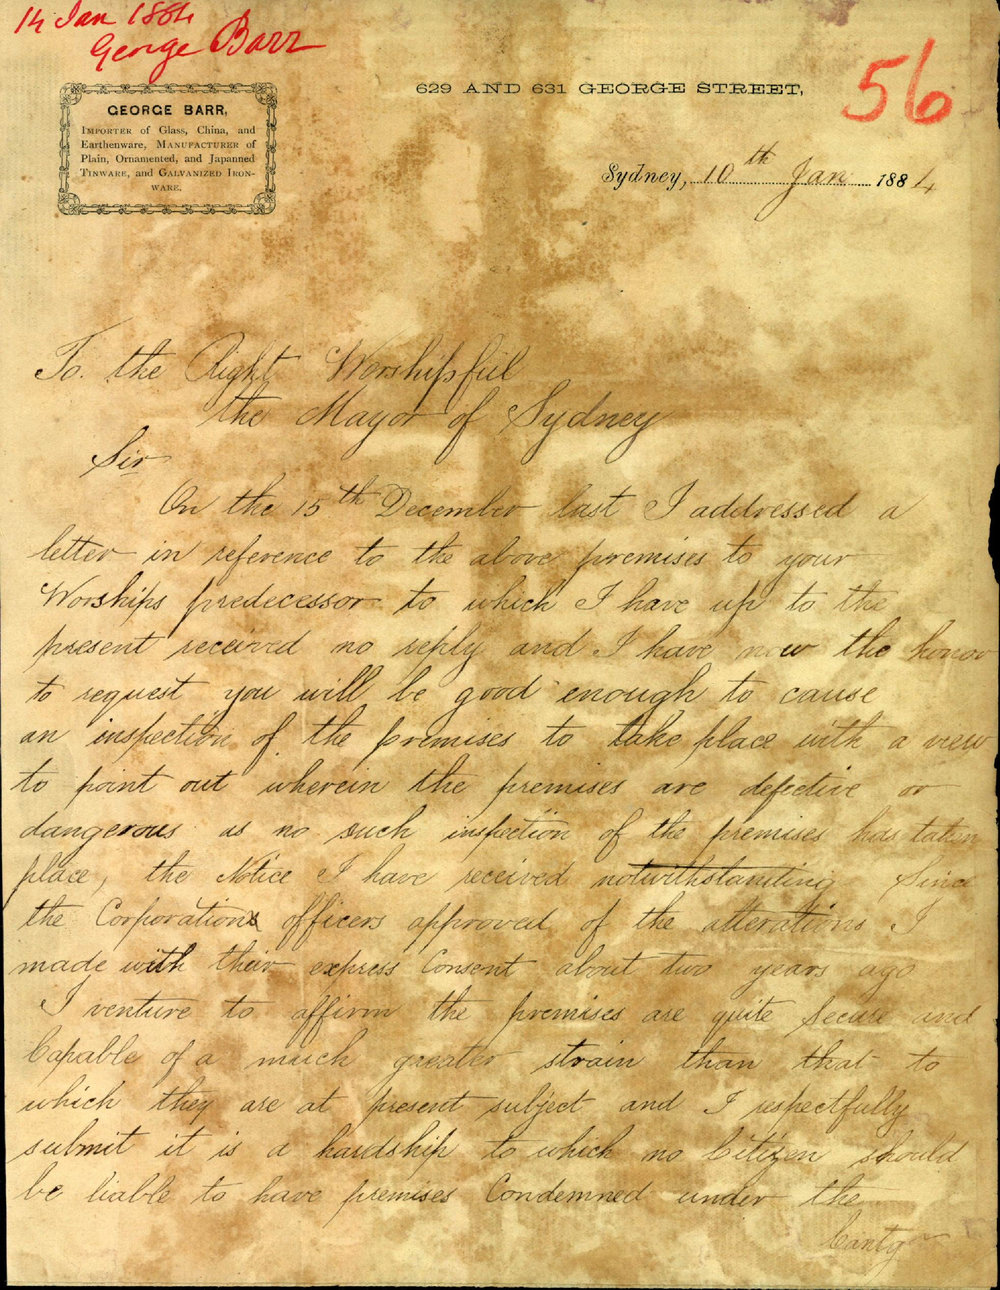 14 Jan 1884
George Barr
56
GEORGE BARR,
IMPORTER of Glass, China, and
Earthenware, MANUFACTURER of
Plain, Ornamented, and Japanned
TINWARE, and GALVANIZED IRON-
WARE.
629 AND 631 GEORGE STREET,
Sydney, 10th Jan 1884
To. the Right Worshipful
the Mayor of Sydney
Sir
On the 15th December last I addressed a
letter in reference to the above premises to your
Worships predecessor to which I have up to the
present received no reply and I have now the honor
to request you will be good enough to cause
an inspection of the premises to take place with a view
to point out wherein the premises are defective or
dangerous as no such inspection of the premises has taken
place, the Notice I have received notwithstanding Since
the Corporations officers approved of the alterations I
made with their express Consent about two years ago
I venture to affirm the premises are quite secure and
Capable of a much greater strain than that to
which they are at present subject and I respectfully
submit it is a hardship to which no Citizen should
be liable to have premises Condemned under the